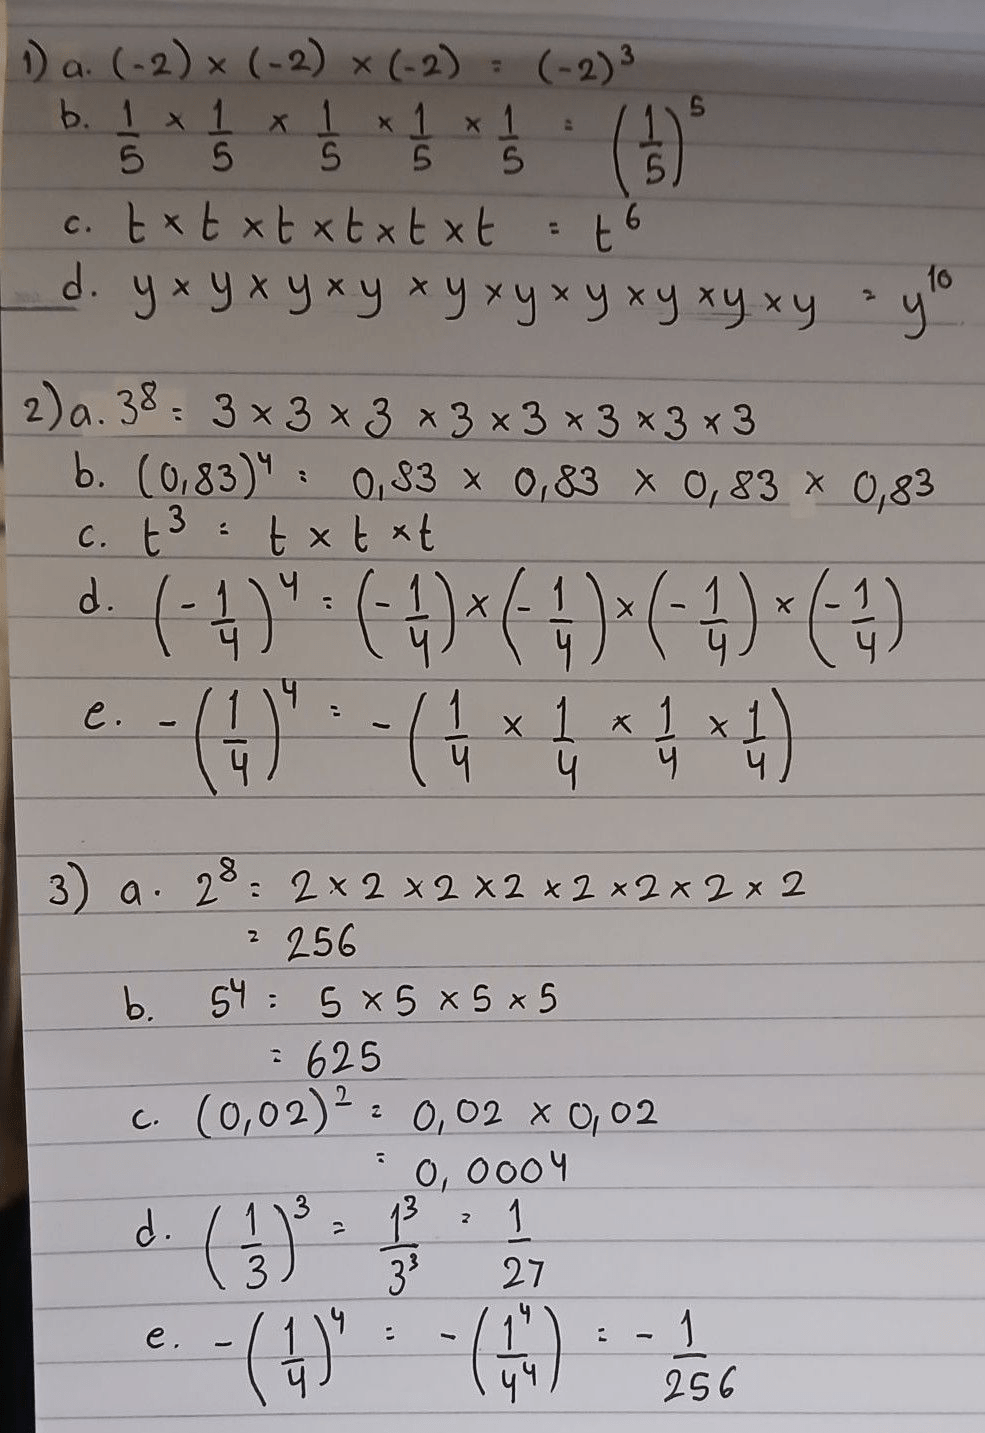 1) a. (-2) × (-2) × (-2) = (-2)³
b. 1/5 × 1/5 × 1/5 × 1/5 × 1/5 = (1/5)⁵
c. t × t × t × t × t × t = t⁶
d. y × y × y × y × y × y × y × y × y × y = y¹⁰
2) a. 3⁸ = 3 × 3 × 3 × 3 × 3 × 3 × 3 × 3
b. (0,83)⁴ = 0,83 × 0,83 × 0,83 × 0,83
c. t³ = t × t × t
d. (-1/4)⁴ = (-1/4) × (-1/4) × (-1/4) × (-1/4)
e. -(1/4)⁴ = -(1/4 × 1/4 × 1/4 × 1/4)
3) a. 2⁸ = 2 × 2 × 2 × 2 × 2 × 2 × 2 × 2
= 256
b. 5⁴ = 5 × 5 × 5 × 5
= 625
c. (0,02)² = 0,02 × 0,02
= 0,0004
d. (1/3)³ = 1³/3³ = 1/27
e. -(1/4)⁴ = -(1⁴/4⁴) = -1/256